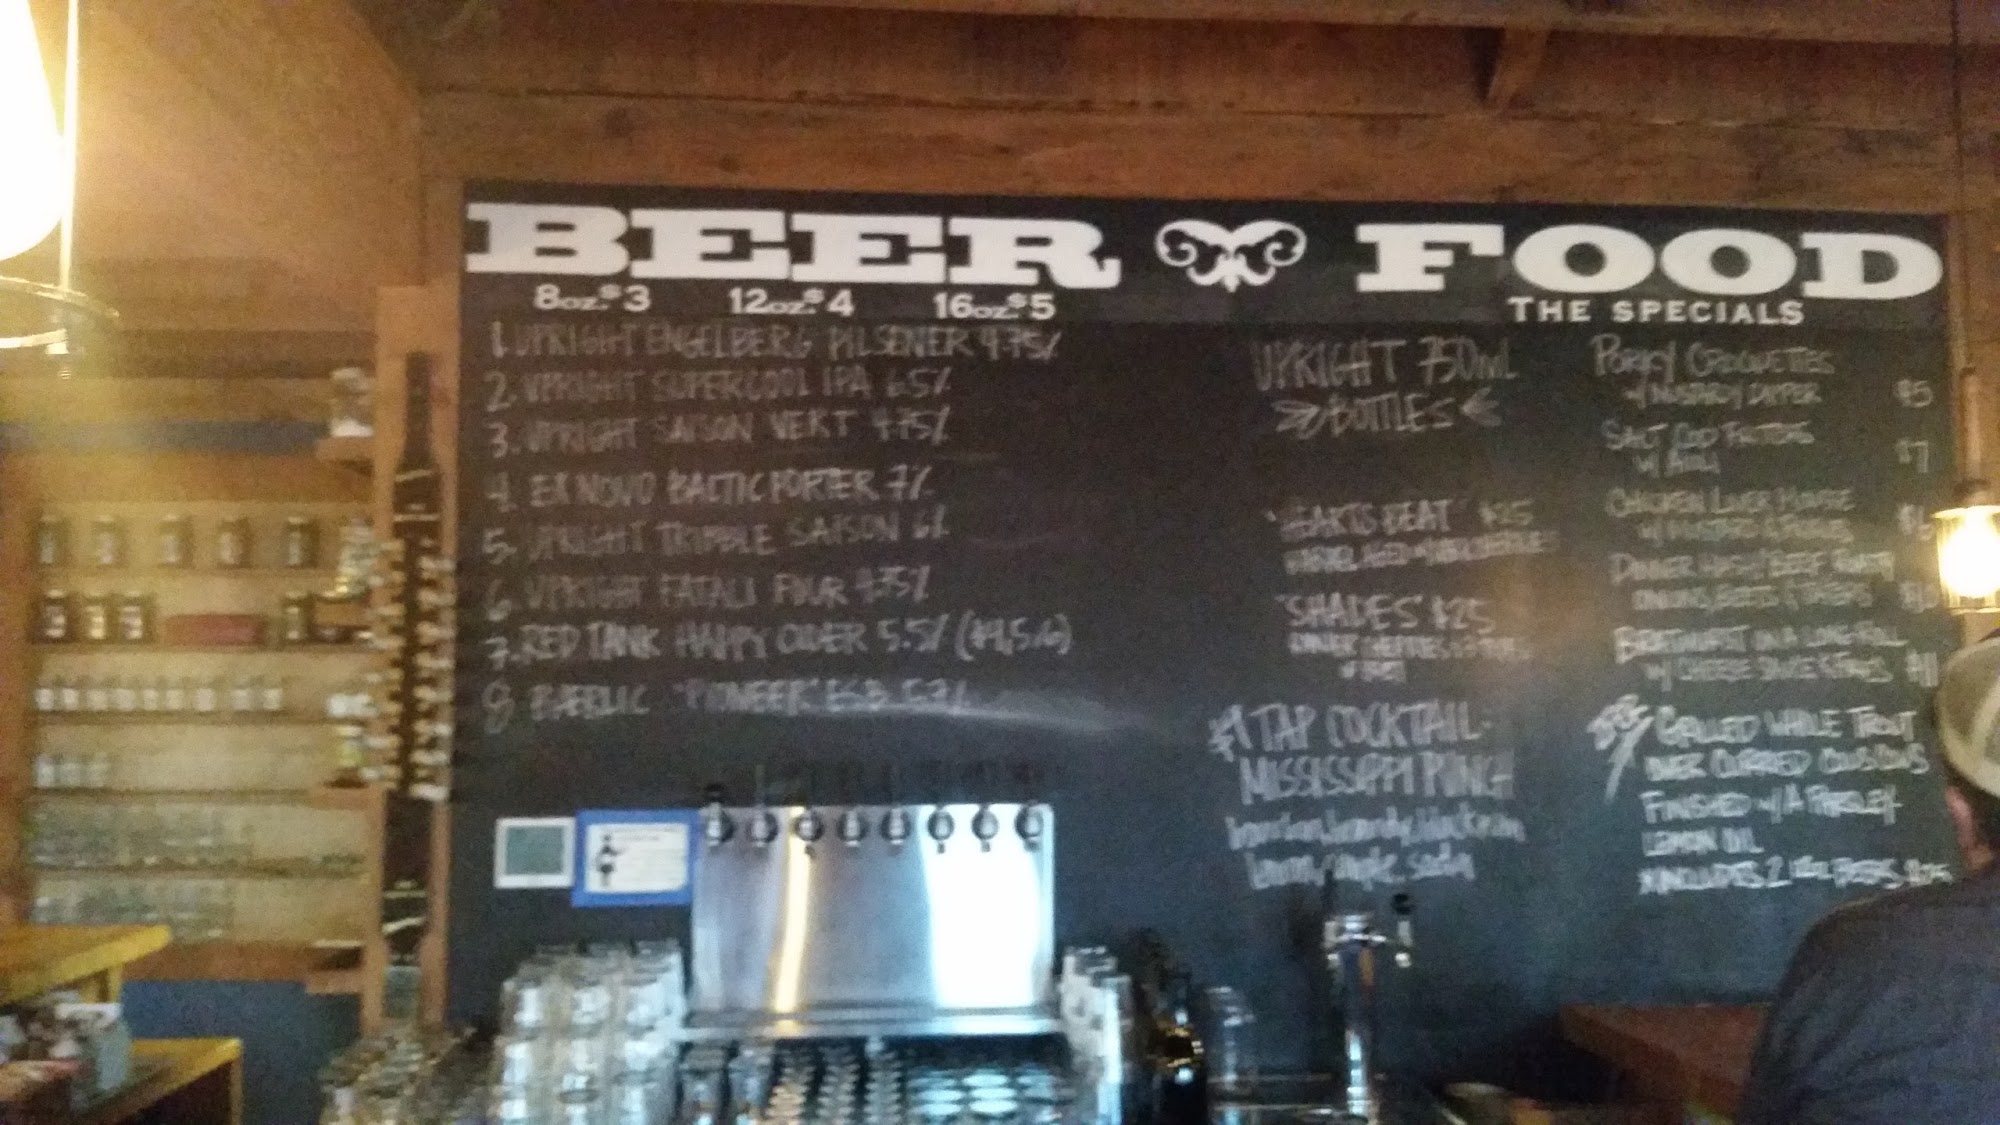 BEER FOOD
8oz. $3 12oz. $4 16oz. $5
THE SPECIALS
1. UPRIGHT ENGELBERG PILSENER 4.75%
2. UPRIGHT SUPERCOOL IPA 6.5%
3. UPRIGHT SAISON VERT 4.75%
4. EX NOVO BALTIC PORTER 7%
5. UPRIGHT TRIMBLE SAISON 6%
6. UPRIGHT FATALI FOUR 4.75%
7. RED TANK HAPPY CIDER 5.5% ($4,5,6)
8. BAERLIC "PIONEER" ESB 5.7%
UPRIGHT 750ML
BOTTLES
"HEARTS BEAT" $25
"SHADES" $25
$9 TAP COCKTAIL-
MISSISSIPPI PUNCH
bourbon, brandy, black rum
lemon, soda
PORKY CROQUETTES
W/ MUSTARD DIPPER $5
SALT COD FRITTERS
W/ AIOLI $7
CHICKEN LIVER MOUSSE
W/ MUSTARD &
DINNER HASH/ BEEF
BEETS &
BRATWURST ON A LONG ROLL
W/ CHEESE SAUCE & $11
GRILLED WHOLE TROUT
OVER CURRIED COUSCOUS
FINISHED W/ A PARSLEY
LEMON OIL
*INCLUDES 2 BEERS $25